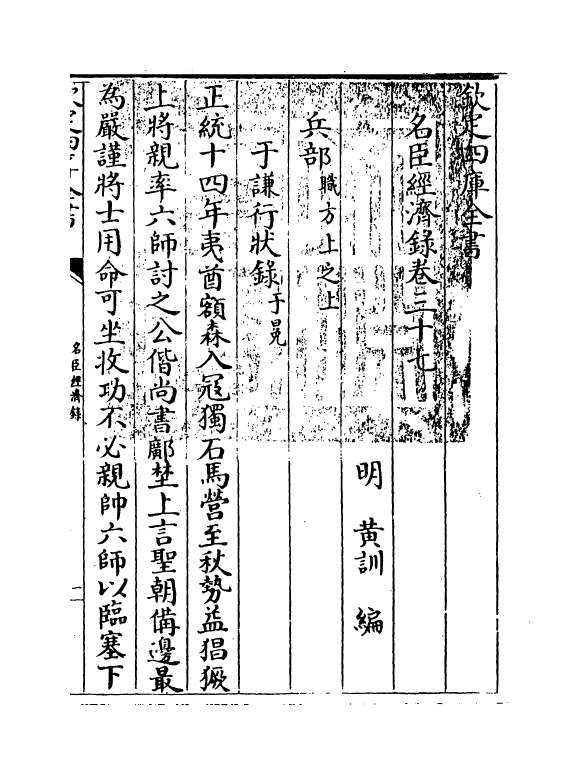 欽定四庫全書
名臣經濟錄卷三十七
明 黄訓 編
兵部職方上之上
于謙行狀錄于冕
正統十四年夷酋額森入冦獨石馬營至秋勢益猖獗
上將親率六師討之公偕尚書鄺埜上言聖朝備邊最
為嚴謹將士用命可坐收功不必親帥六師以臨塞下
欽定四庫全書
名臣經濟錄
一